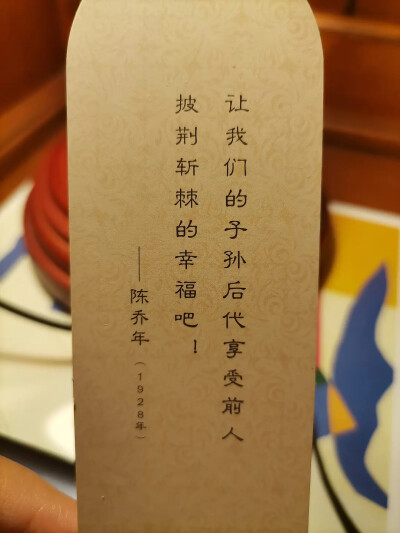 让我们的子孙后代享受前人
披荆斩棘的幸福吧！
——陈乔年（1928年）